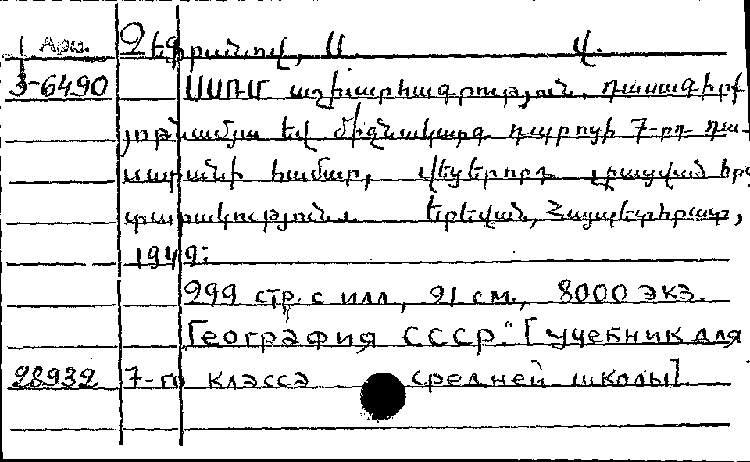 Арм. Չեֆրանով, Ս. Վ.
3-6490 ՍՍՌՄ աշխարհագրություն. դասագիրք
յոթնամյա եվ միջնակարգ դպրոցի 7-րդ դա-
սարանի համար, վեցերորդ լրացված հրա
տարակություն. Երեվան, Հայպետհրատ,
1949:
299 стр. с илл, 21 см., 8000 экз.
География СССР." [учебник для
28932 7-го класса средней школы].